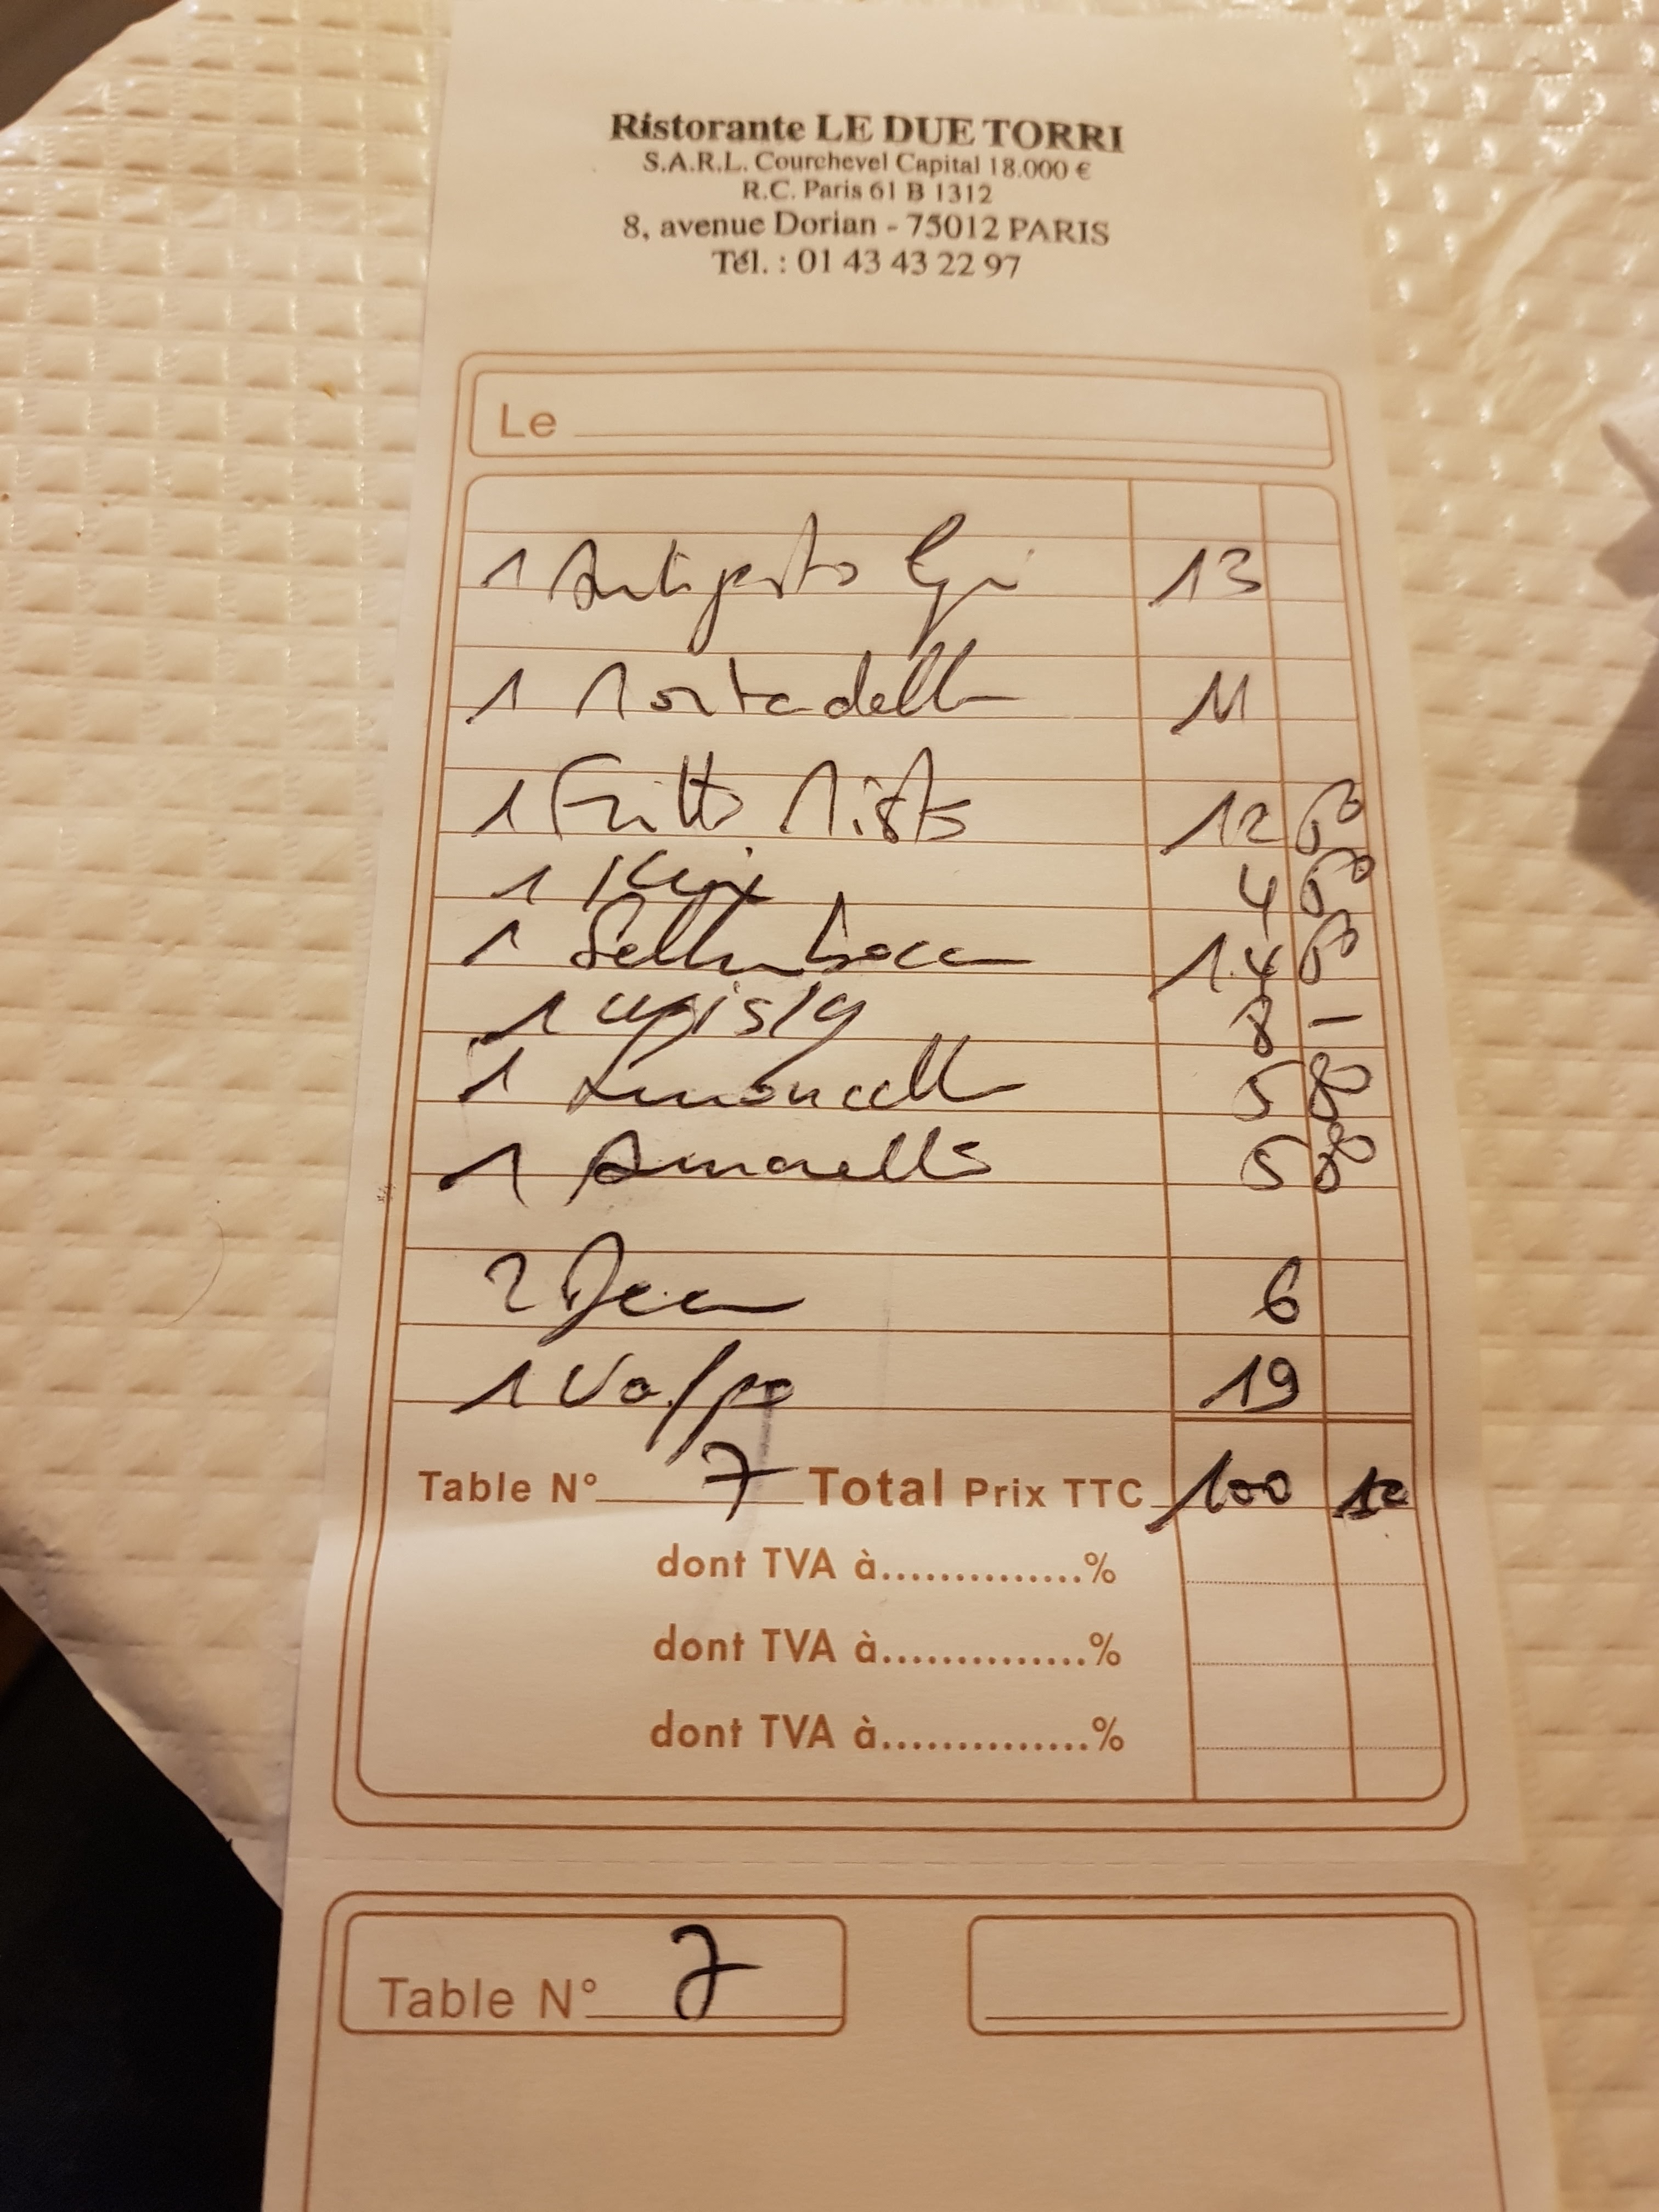 Ristorante LE DUE TORRI
S.A.R.L. Courchevel Capital 18.000 €
R.C. Paris 61 B 1312
8, avenue Dorian - 75012 PARIS
Tél. : 01 43 43 22 97
Le
1 Antipasto 13
1 Mortadella 11
1 Fritto Misto 12 50
1 4 50
1 14 50
1 8 –
1 Limoncello 5 80
1 5 80
2 Deca 6
1 Valpo 19
Table N° 7 Total Prix TTC 100 10
dont TVA à..............%
dont TVA à..............%
dont TVA à..............%
Table N° 7